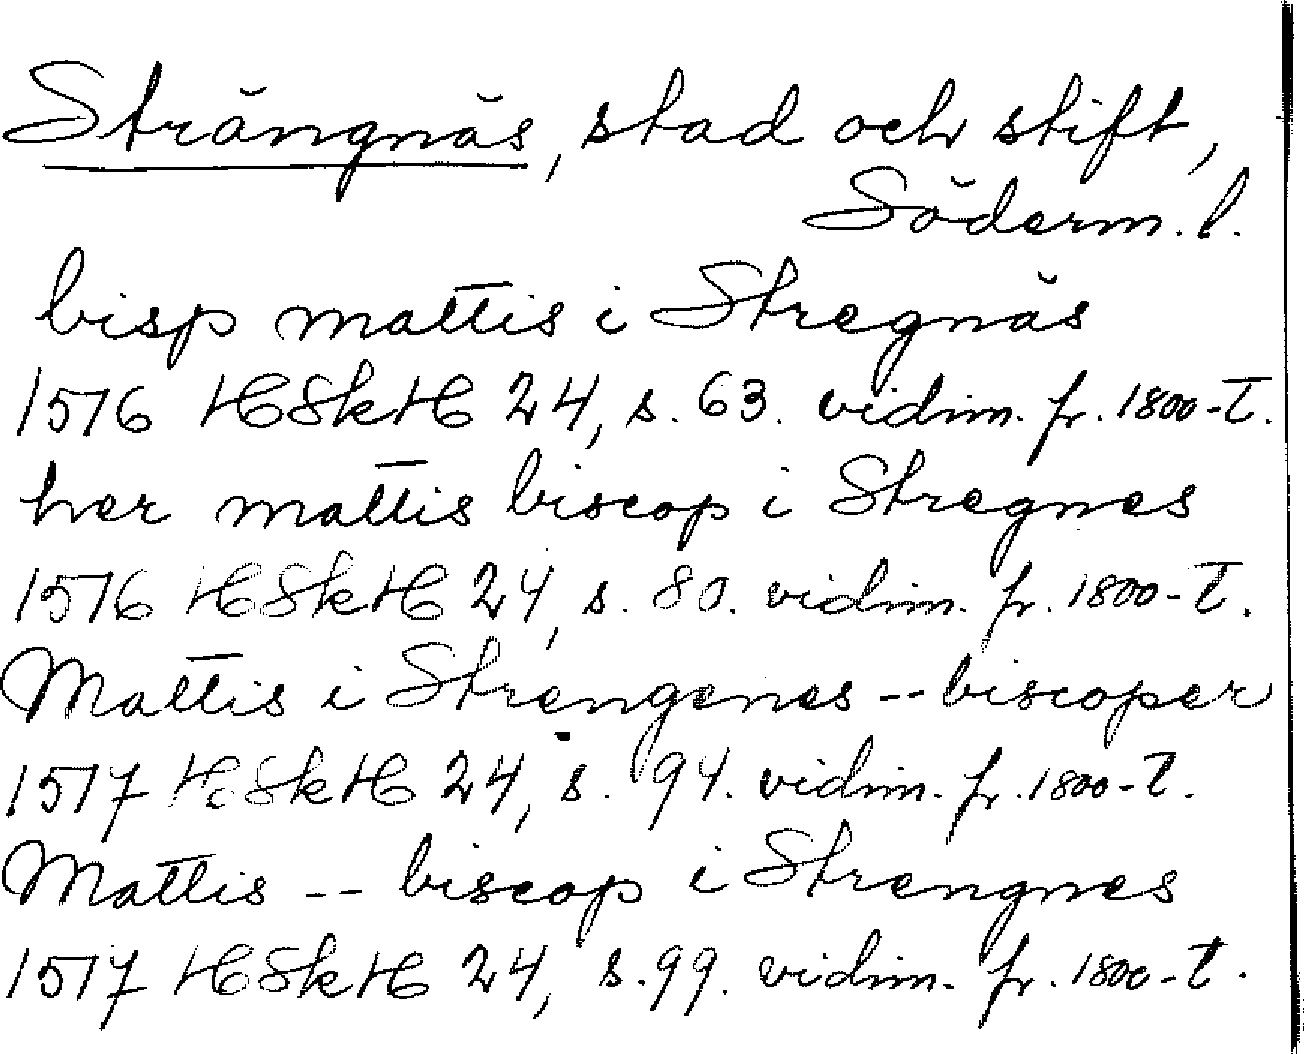 Strängnäs, stad och stift,
Söderm. l.
bisp mattis i Stregnäs
1516 HSkH 24, s. 63. vidim. fr. 1800-t.
her mattis biscop i Stregnes
1516 HSkH 24, s. 80. vidim. fr. 1800-t.
Mattis i Strengenes -- biscoper
1517 HSkH 24, s. 94. vidim. fr. 1800-t.
Mattis -- biscop i Strengnes
1517 HSkH 24, s. 99. vidim. fr. 1800-t.